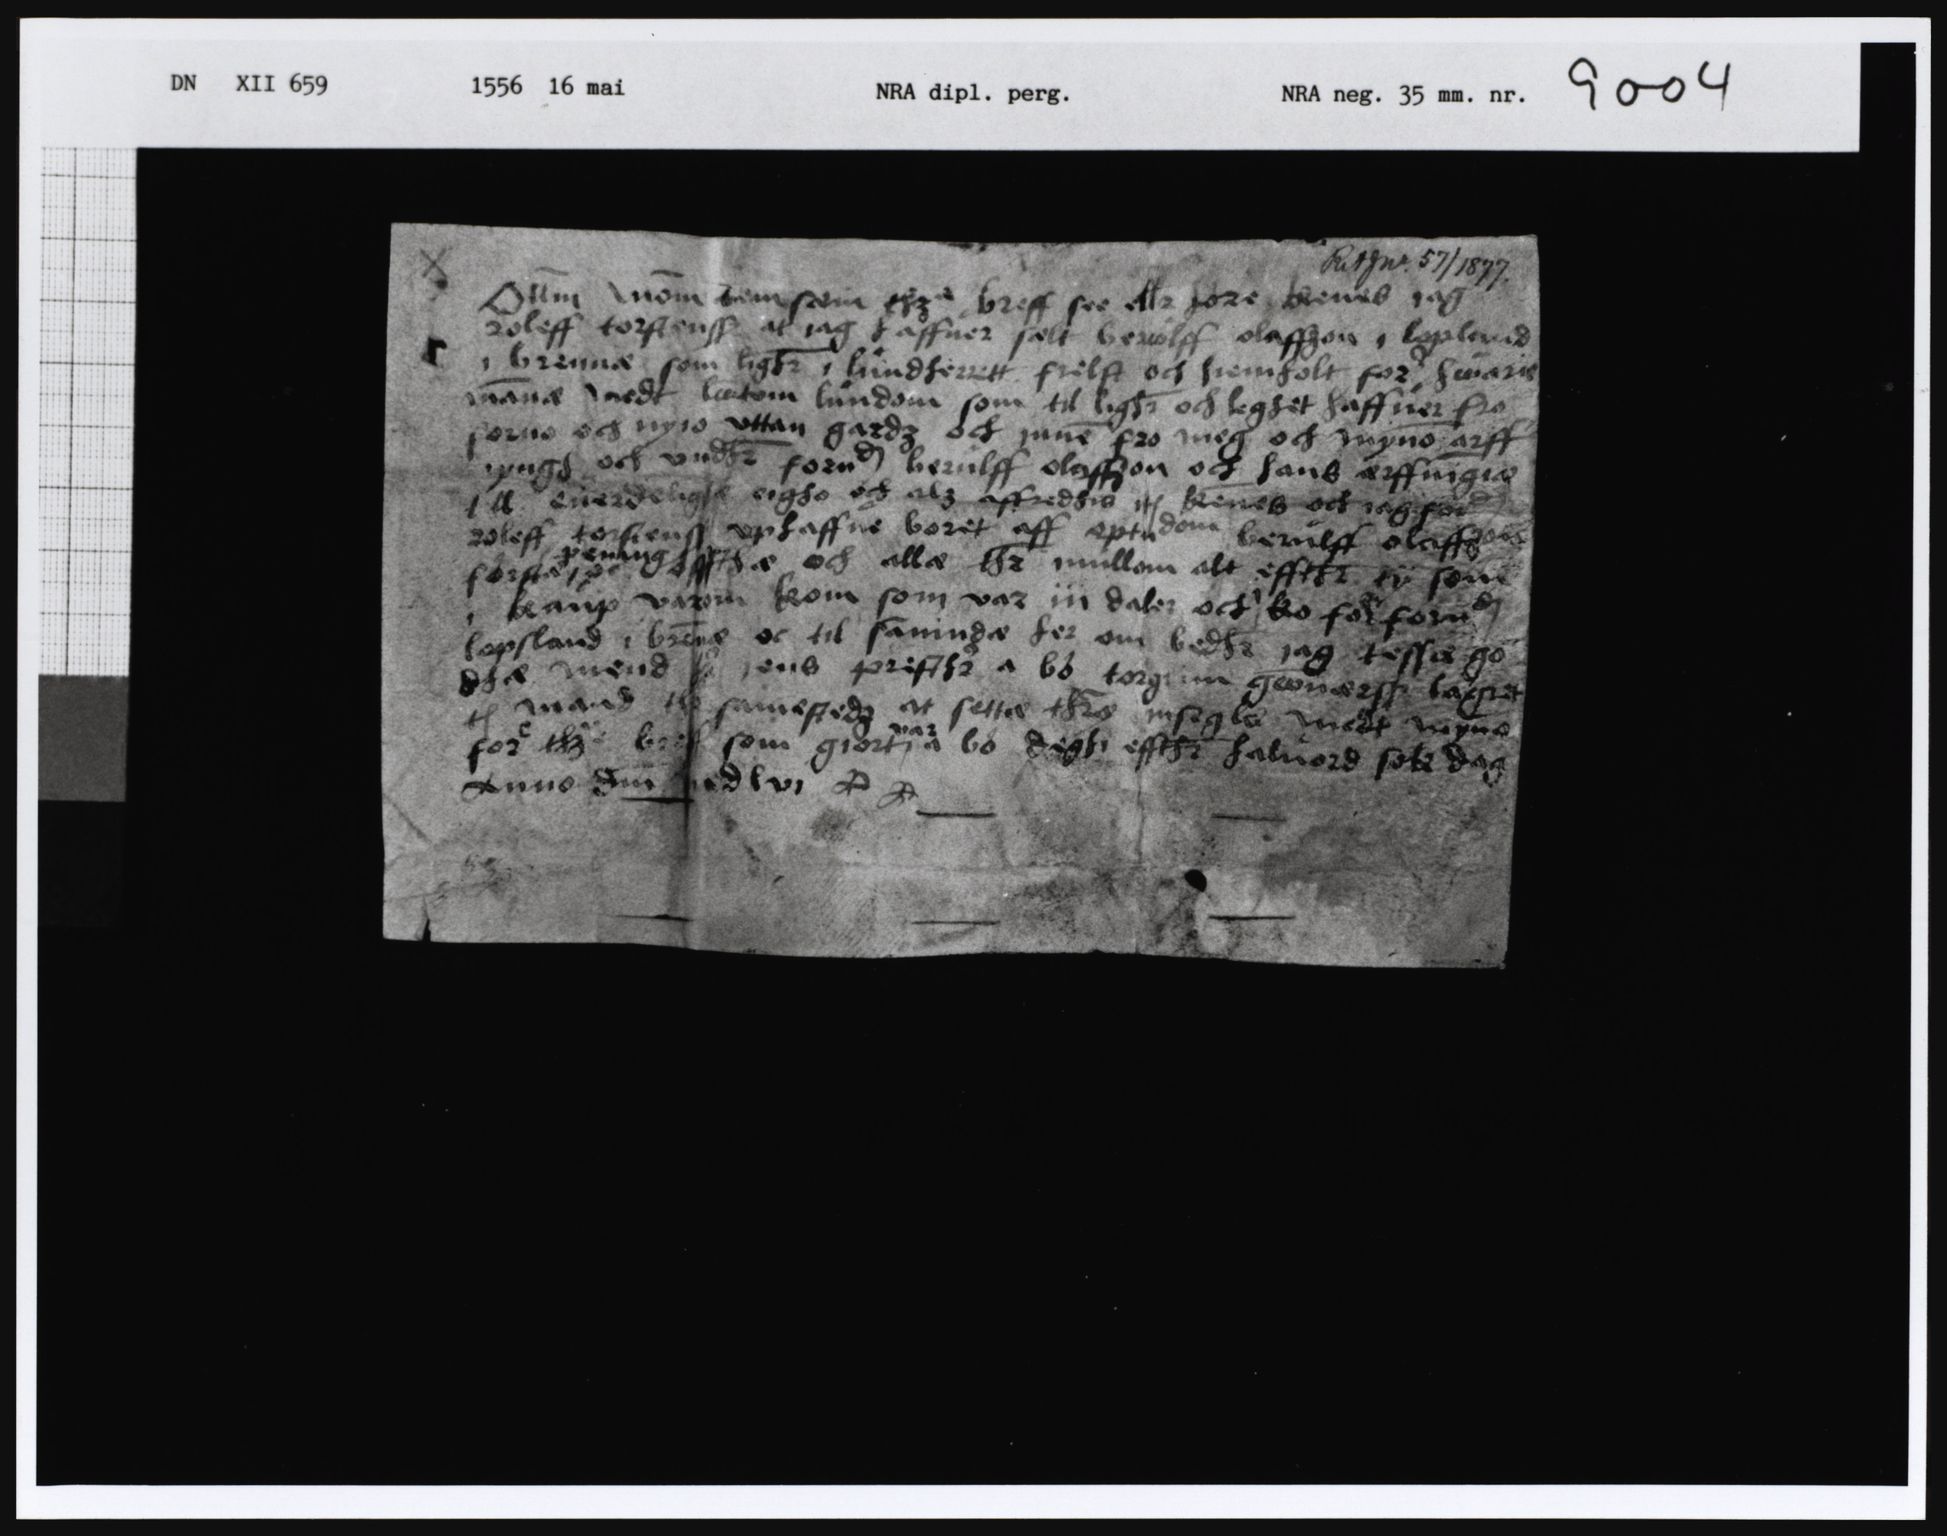 DN XII 659 1556 16 mai NRA dipl. perg. NRA neg. 35 mm. nr. 9004
57/1877
Ollm mōm tem som thze breff see ellr høre kennes iag
roleff torstenss at iag haffuer sælt berulff olaffzon i lopland
i brennæ som lighr i lundherrett frelst och hiemholt for hwaris
mānæ medt lwtom lundom som til lighr och leghet haffuer fro
forno och nyio vttan gardz och innē fro meg och myno arff
iyngh och vndhr fornd berulff olaffzon och hans ærffnīgio
till euerdeligh eigho och alz affredhis kennes och iag for
roleff torstenss vphaffue boret aff optndom berulff olaffzon
førstæ pening øffsthæ och allæ thr mullom alt effthr ty som
i kaup varom kom som var iii daler och i ko for fornd
lopsland i brennæ oc til sannindæ her om bedhr iag tessæ go
dhæ mend jens presthr a bø torgrim gwnærss lagret
th mand samestedz at settæ thrs insegle mett myno
for thze breff som giort var a bø deghi effthr haluord sokr dag
Anno dm mdlvi